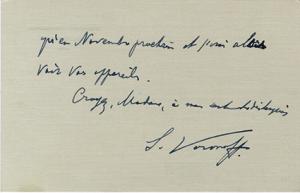 qu'en Novembre prochain et j'irai alors
voir vos appareils.
Croyez, Madame, à mes
S. Voronoff.